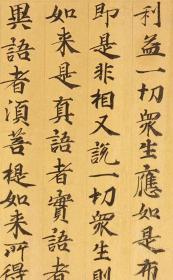 利益一切衆生應如是布
即是非相又說一切衆生則
如来是真語者實語者
異語者須菩提如来所得